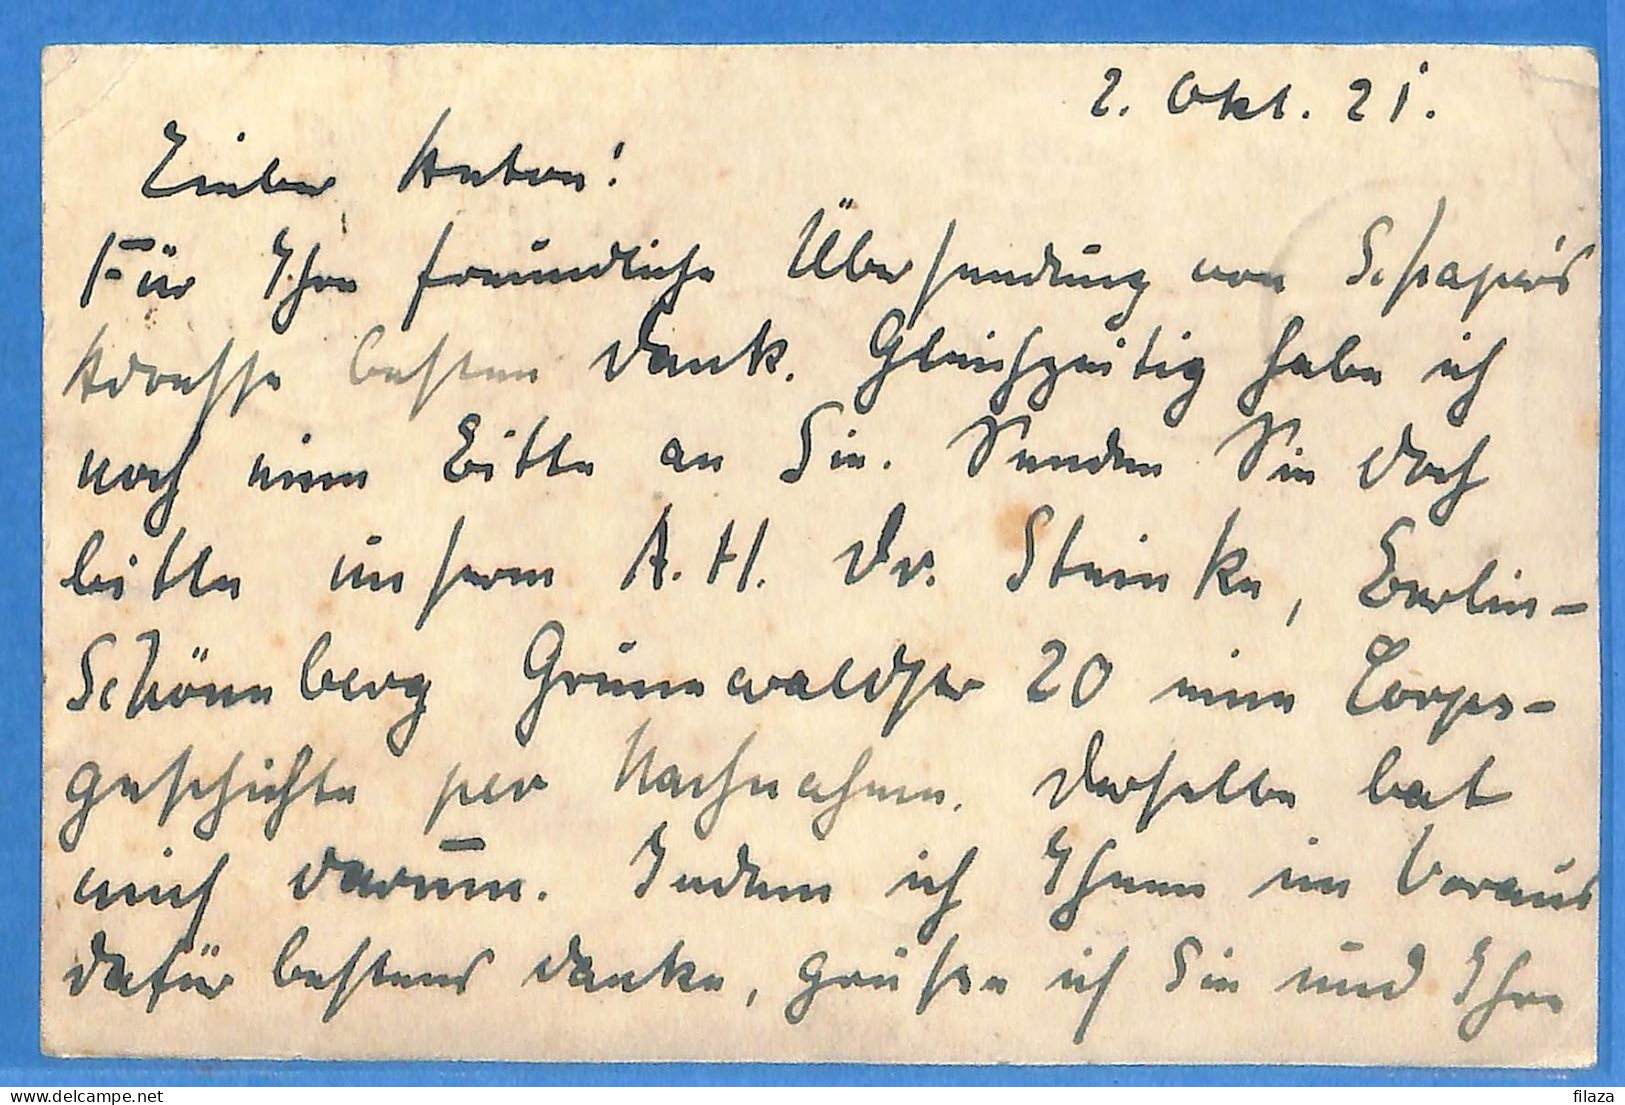 2. Okt. 21.
Lieber Anton!
Für Ihre freundliche Übersendung von Schaper's
Adresse besten Dank. Gleichzeitig habe ich
noch eine Bitte an Sie. Senden Sie doch
bitte unserm A. H. Dr. Steinke, Berlin-
Schöneberg Grunewaldstr 20 eine Corps-
geschichte per Nachnahme. Derselbe bat
mich darum. Indem ich Ihnen im Voraus
dafür bestens danke, grüße ich Sie und Ihre
delcampe.net
filaza